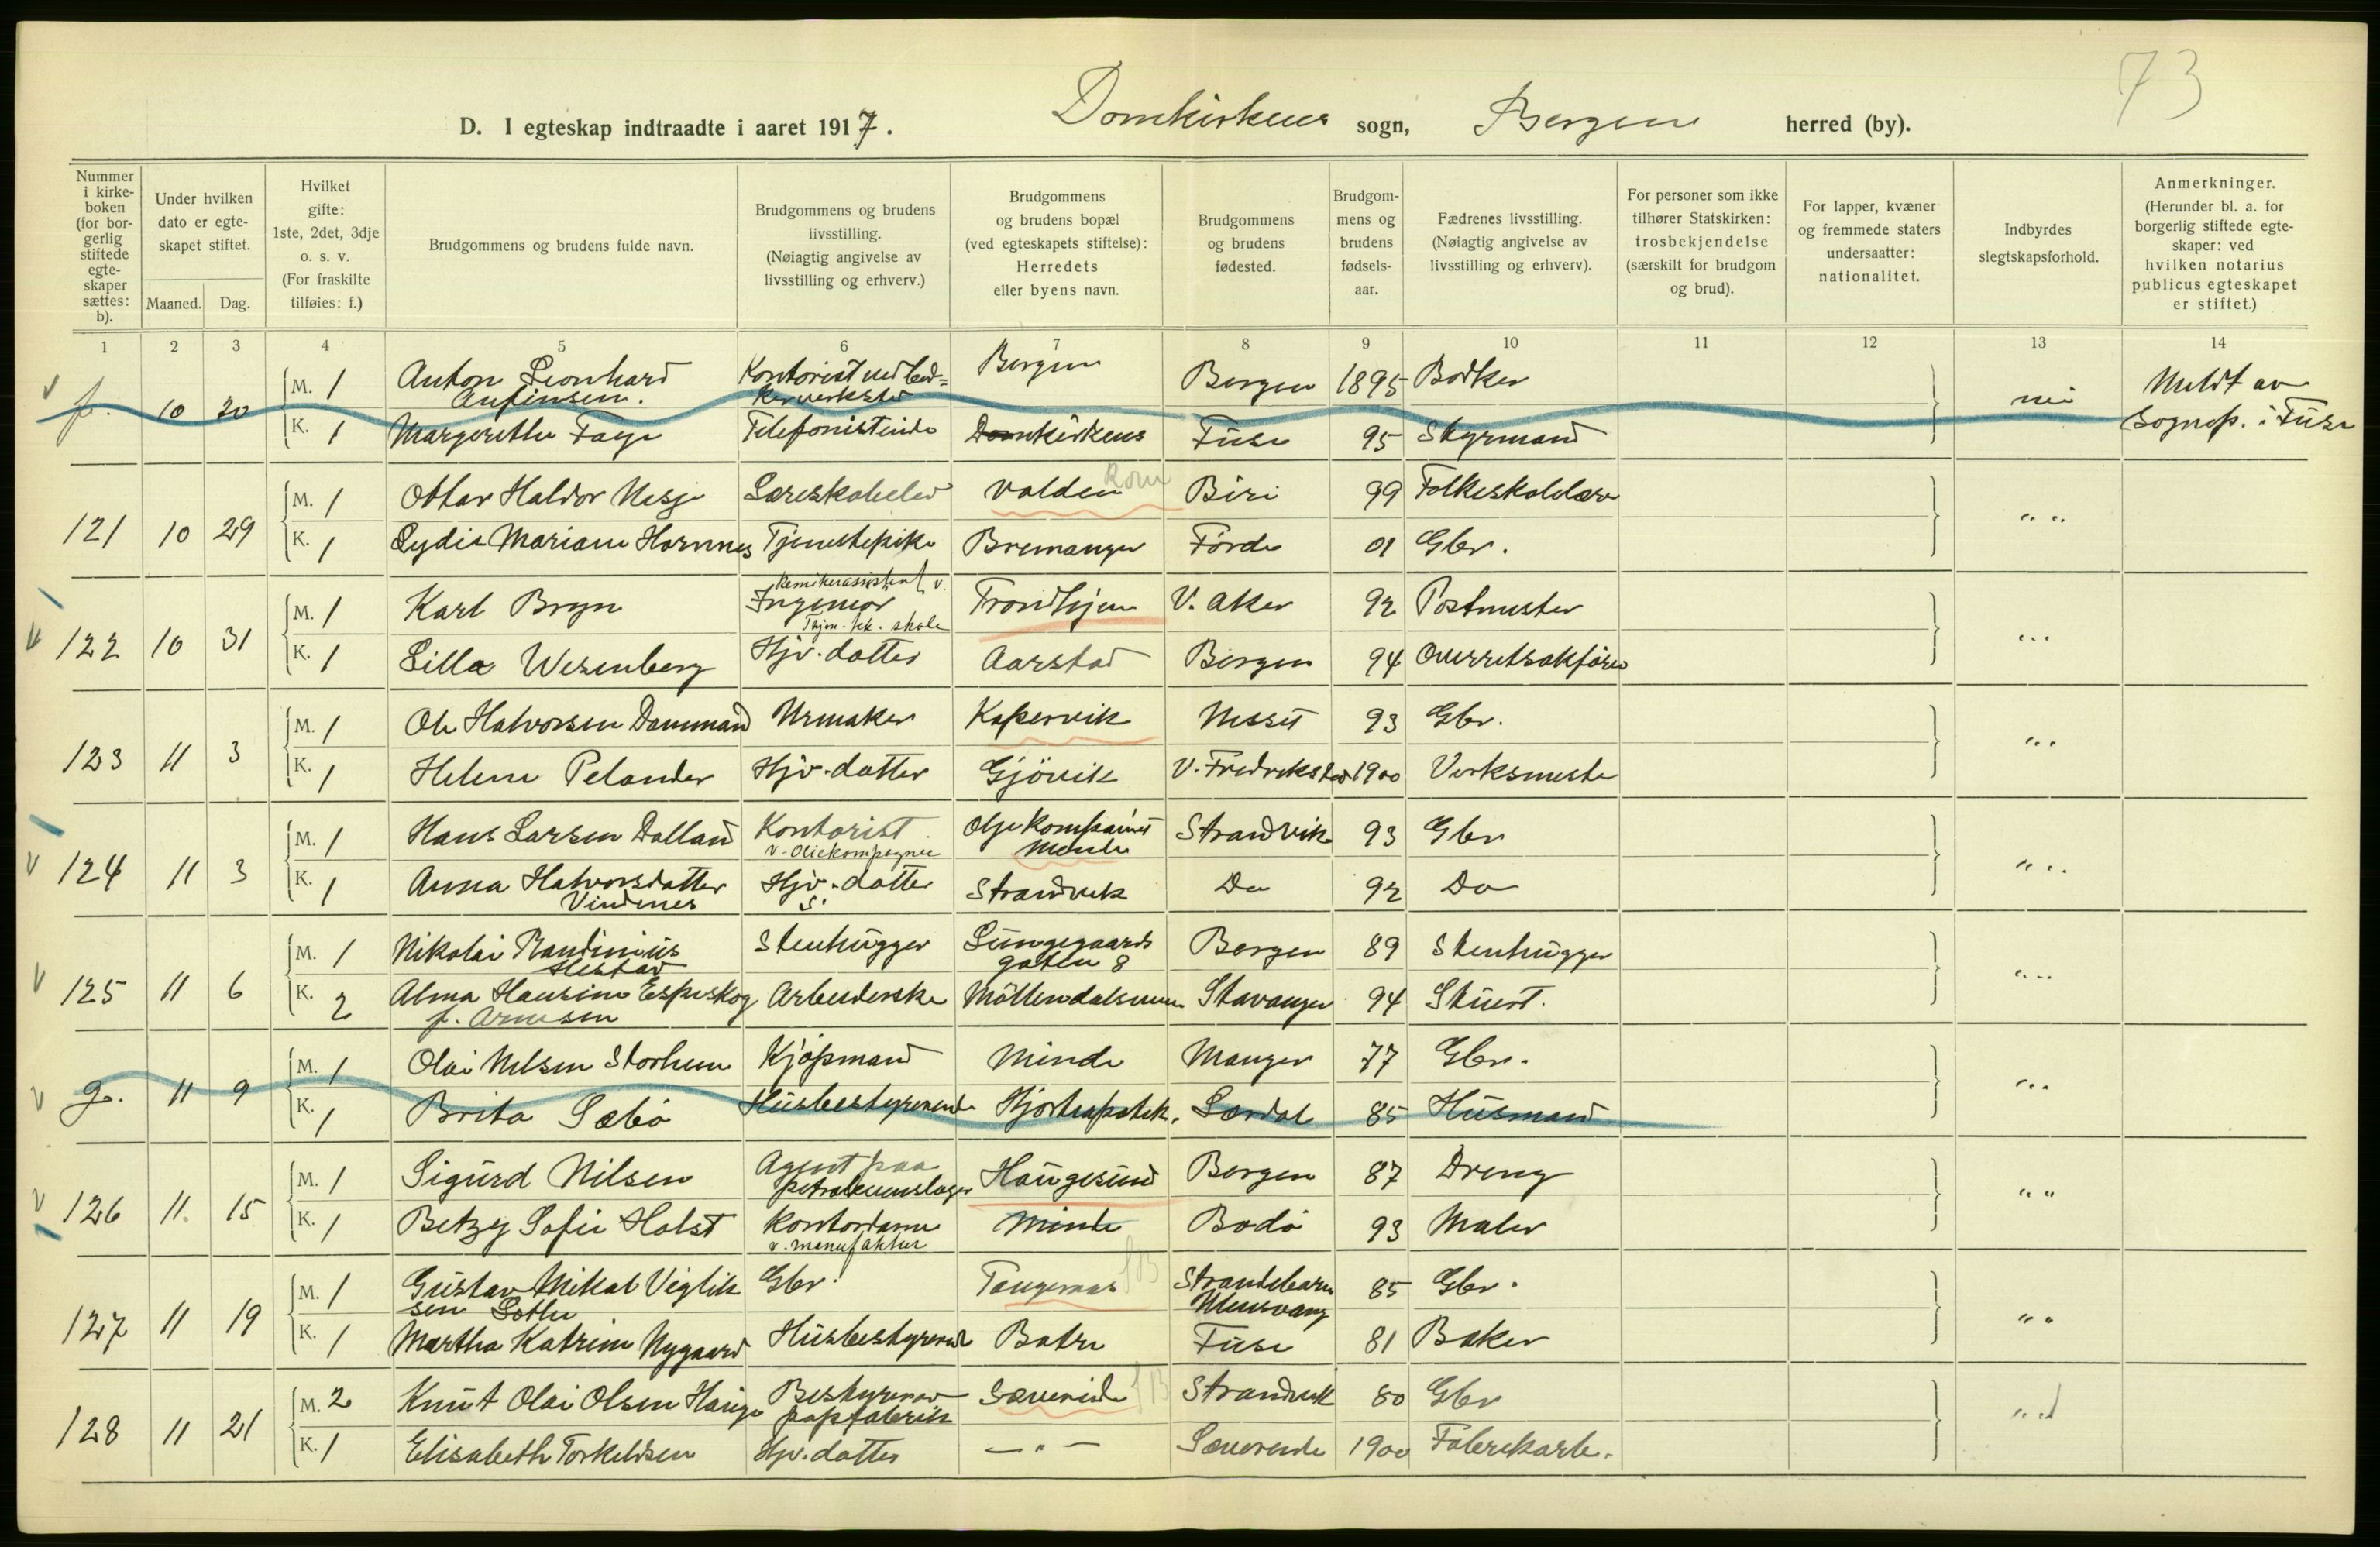 73
D. I egteskap indtraadte i aaret 1917. Domkirkens sogn, Bergen herred (by).
Nummer i kirkeboken (for borgerlig stiftede egteskaper sættes: b).
Under hvilken dato er egteskapet stiftet.
Maaned. Dag.
Hvilket gifte: 1ste, 2det, 3dje o. s. v. (For fraskilte tilføies: f.)
Brudgommens og brudens fulde navn.
Brudgommens og brudens livsstilling. (Nøiagtig angivelse av livsstilling og erhverv.)
Brudgommens og brudens bopæl (ved egteskapets stiftelse): Herredets eller byens navn.
Brudgommens og brudens fødested.
Brudgommens og brudens fødselsaar.
Fædrenes livsstilling. (Nøiagtig angivelse av livsstilling og erhverv).
For personer som ikke tilhører Statskirken: trosbekjendelse (særskilt for brudgom og brud).
For lapper, kvæner og fremmede staters undersaatter: nationalitet.
Indbyrdes slegtskapsforhold.
Anmerkninger. (Herunder bl. a. for borgerlig stiftede egteskaper: ved hvilken notarius publicus egteskapet er stiftet.)
1 2 3 4 5 6 7 8 9 10 11 12 13 14
f. 10 20 M. 1 Anton Leonhard Anfinsen. Kontorist ved Bergen Bergen 1895 Bødker nei Meldt av
K. 1 Margrethe Faye Telefonistinde Domkirkens Fuse 95 Styrmand Sognep. i Fuse
121 10 29 M. 1 Ottar Haldor Nesje Læreskoleelev Volden Biri 99 Folkeskolelærer
K. 1 Lydia Mariane Hornnes Tjenestepike Bremanger Förde 01 Gbr.
122 10 31 M. 1 Karl Bryn Kemikerassistent v. Ingeniør Thjem. tek. skole Trondhjem V. Aker 92 Postmester
K. 1 Lilla Wesenberg Hjv. datter Aarstad Bergen 94 Overretsakfører
123 11 3 M. 1 Ole Halvorsen Dammand Urmaker Kopervik Nesset 93 Gbr.
K. 1 Helene Pelander Hjv. datter Gjövik V. Fredrikstad 1900 Verksmester
124 11 3 M. 1 Hans Larsen Dalland Kontorist v. Oliekompagnie Oljekompainet Minde Strandvik 93 Gbr
K. 1 Anna Halvorsdatter Vindenes Hjv. datter S. Strandvik Do 92 Do
125 11 6 M. 1 Nikolai Randinius Hestad Stenhugger Lungegaards gaten 8 Bergen 89 Stenhugger
K. 2 Alma Hansine Espeskog f. Arnesen Arbeiderske Möllendalsveien Stavanger 94 Stuert.
g. 11 9 M. 1 Olai Nilsen Storheim Kjöpmand Minde Manger 77 Gbr.
K. 1 Brita Sæbö Husbestyrerinde Hjorteapotek. Lærdal 85 Husmand
126 11 15 M. 1 Sigurd Nilsen Agent paa petroleumslager Haugesund Bergen 87 Dreng
K. 1 Betzy Sofie Holst Kontordame v. manufaktur Minde Bodö 93 Maler
127 11 19 M. 1 Gustav Mikal Vigliksen Lothe Gbr. Tangeraas Strandebarm Ullensvang 85 Gbr.
K. 1 Martha Katrine Nygaard Husbestyrerinde Batre Fuse 81 Baker
128 11 21 M. 2 Knut Olai Olsen Hauge Bestyrer av papfabrik Sævareide Strandvik 80 Gbr
K. 1 Elisabeth Torkildsen Hjv. datter — " — Sævareide 1900 Fabrikarb.